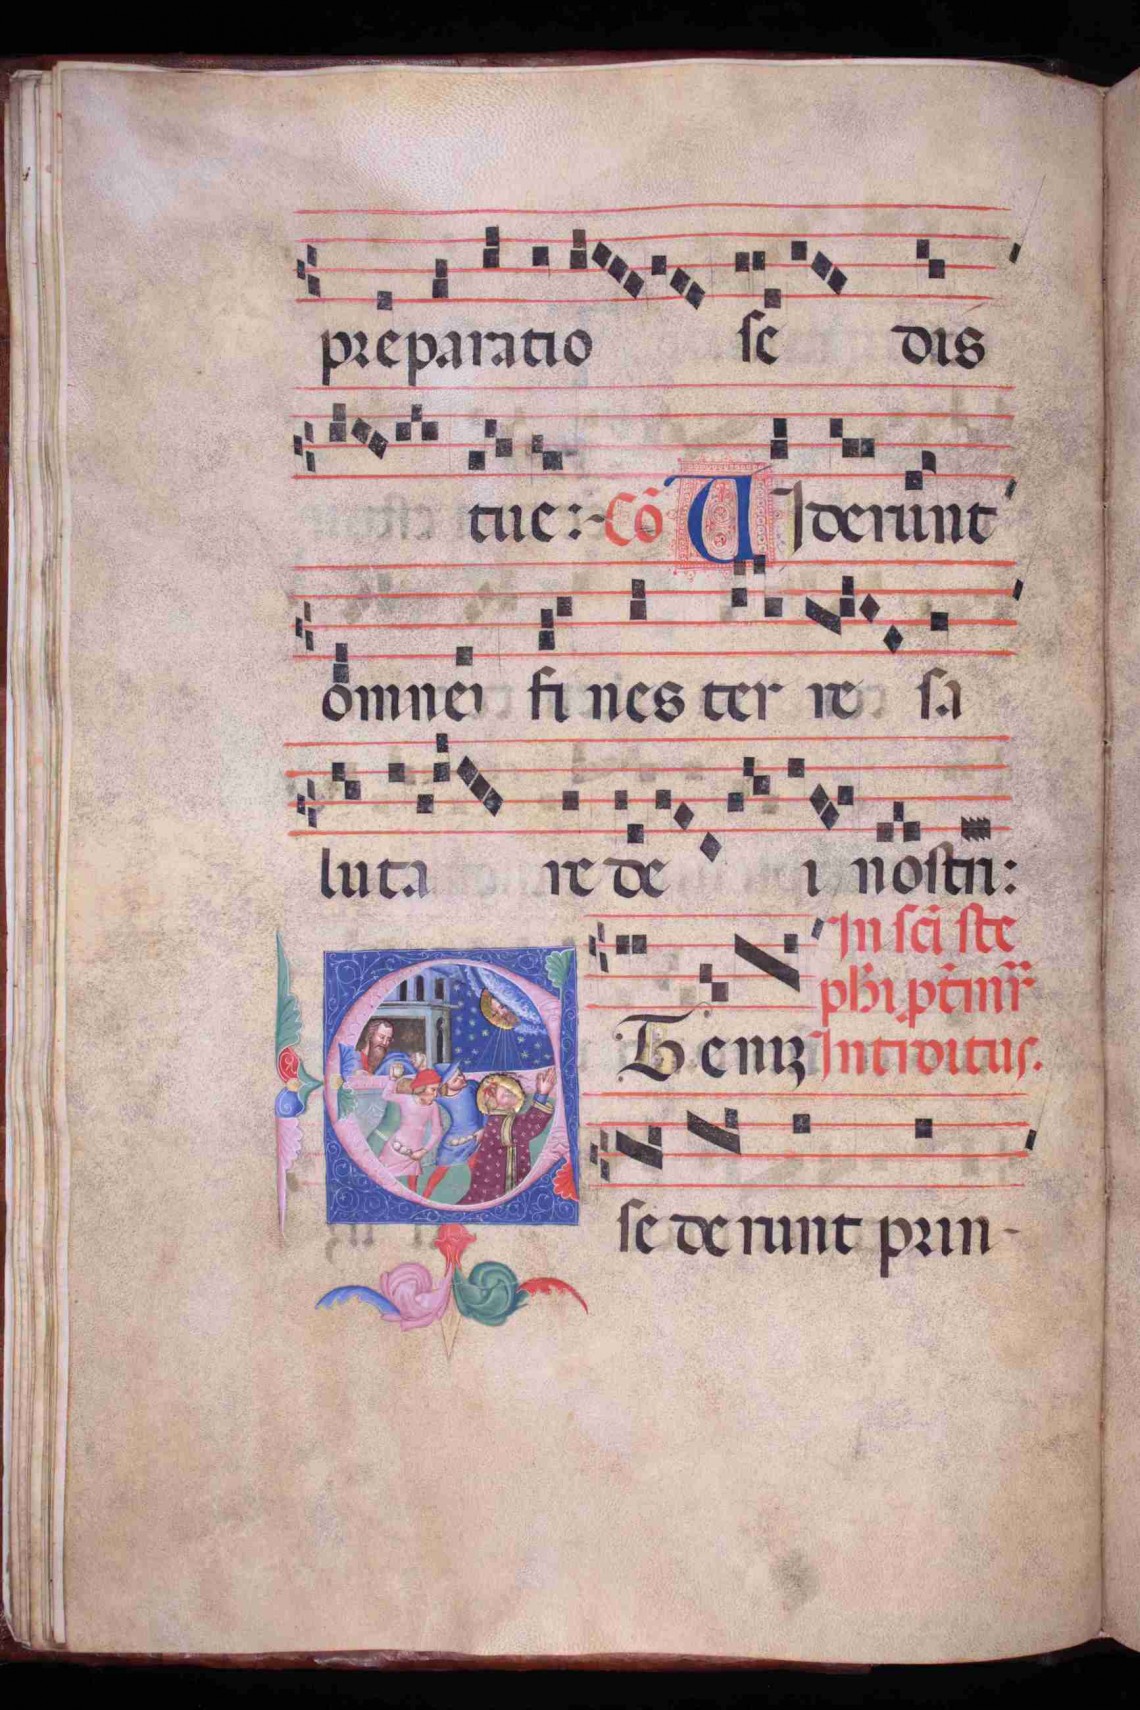 preparatio se dis
tue: Cō VIderunt
omnes fi nes ter re sa
luta re de i nostri:
In scī ste
phī ptīmr̄
Et enīz Introitus.
se de runt prin-